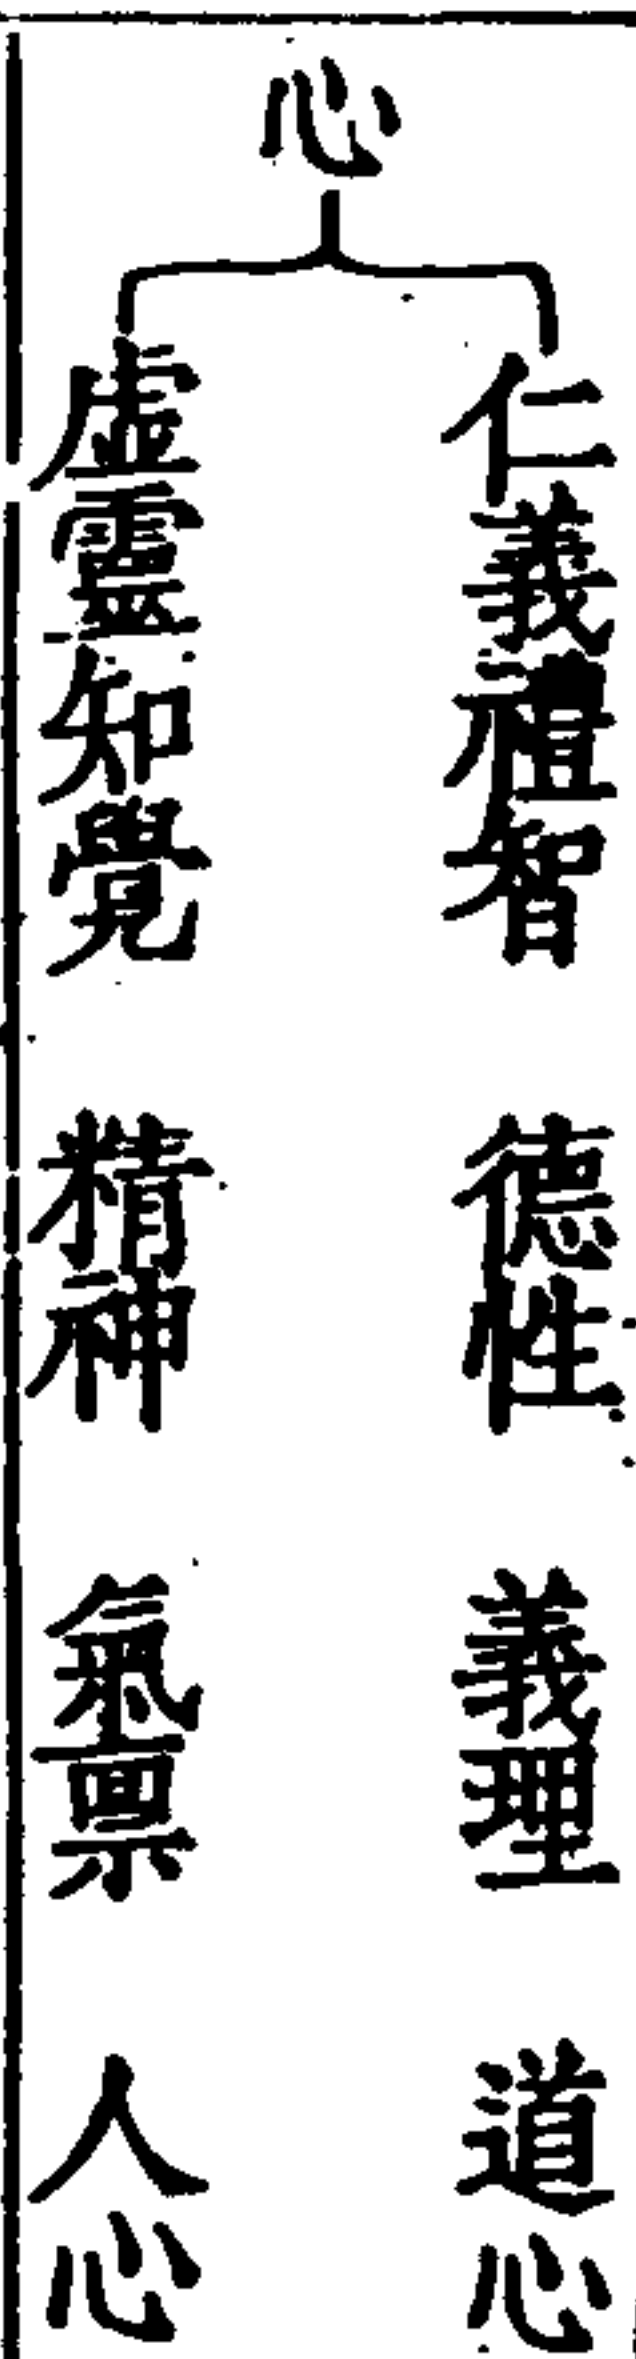 心
仁義禮智 德性 義理 道心
虛靈知覺 精神 氣稟 人心